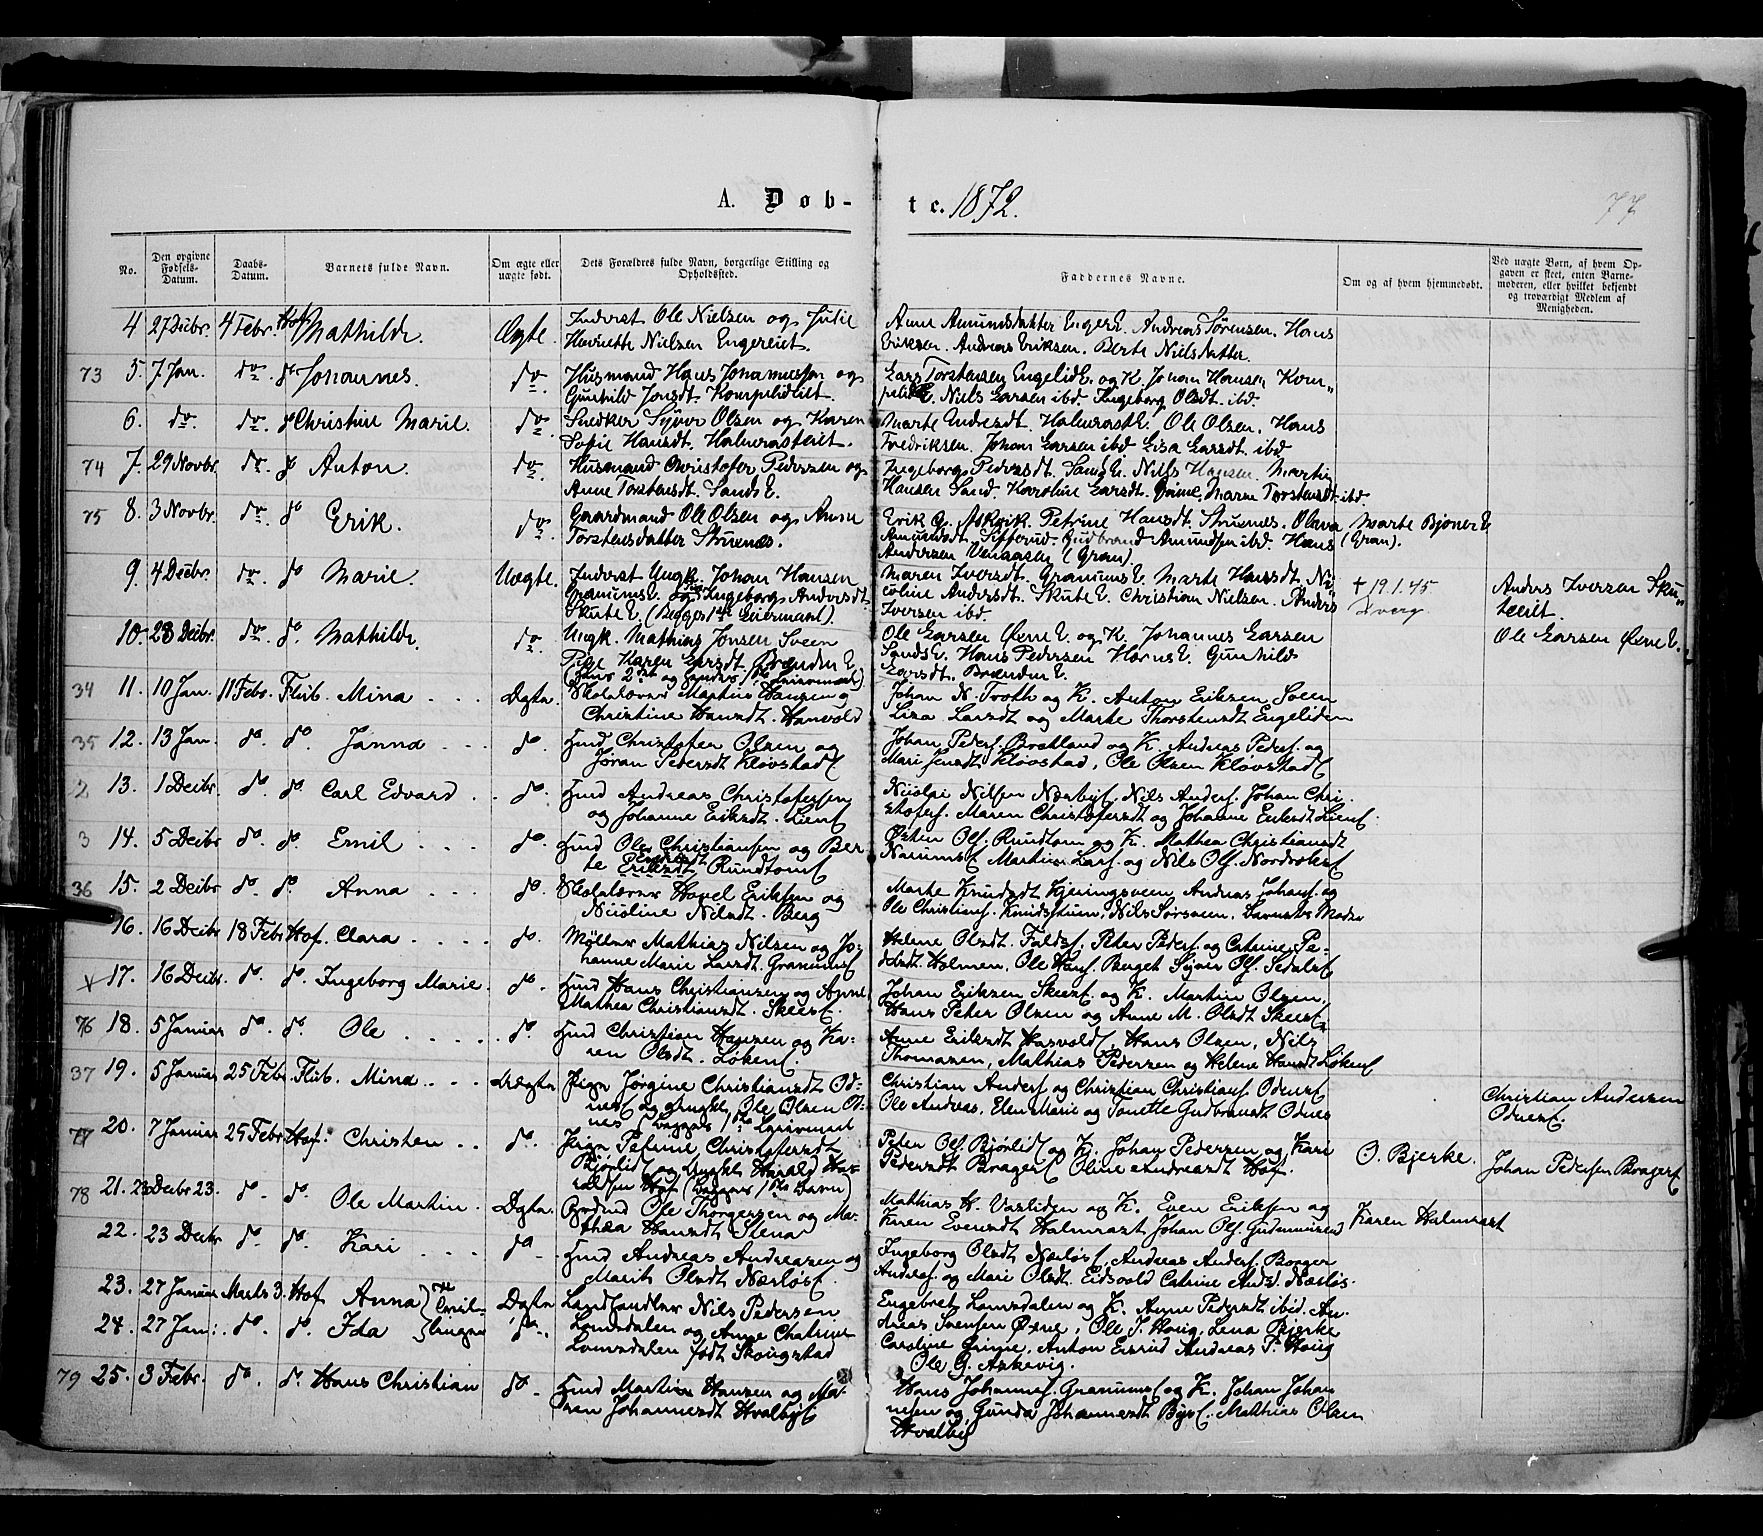 A. Døb-
te. 1872.
77
No.
Den opgivne Fødsels-Datum.
Daabs-Datum.
Barnets fulde Navn.
Om ægte eller uægte født.
Dets Forældres fulde Navn, borgerlige Stilling og Opholdssted.
Faddernes Navne.
Om og af hvem hjemmedøbt.
Ved uægte Børn, af hvem Opgaven er skeet, enten Barnemoderen, eller hvilket bekjendt og troværdigt Medlem af Menigheden.
4 27 Dcbr. 4 Febr. Hof Mathilde. Ægte. Inderst Ole Nielsen og Julie
Henriette Nielsen Engereiet.
Anne Amundsdatter Enger E. Andreas Sørensen. Hans
Eriksen. Andreas Eriksen. Berte Nielsdatter.
73 5. 7 Jan. do do Johannes. do Husmand Hans Johannesson og
Gunhild Jonsdt. Kompelideiet.
Lars Torstensen Engelid E. og K. Johan Hansen Kom-
pelid E. Niels Larsen ibd. Ingeborg Olsdt. ibd.
6. do. do. do Christine Marie. do Snedker Syver Olsen og Karen
Sofie Hansdt. Halmrasteiet.
Marte Endresdt. Halmrast E. Ole Olsen. Hans
Fredriksen. Johan Larsen ibd Lisa Larsdt. ibd
74 7. 29 Novbr. do. do Anton. do. Husmand Christofer Pedersen og
Anne Torstensdt. Sands E.
Ingeborg Pedersdt. Sands E. Niels Hansen. Martin
Hansen Sand. Karoline Larsdt. Maren Torstensdt. ibd.
75 8. 3 Novbr. do. do Erik. do. Gaardmand Ole Olsen og Anne
Torstensdatter Struenæs.
Erik G. Askvik. Petrine Hansdt. Struenes. Olava
Amundsdt. Sifferud. Gudbrand Amundsen ibd. Hans
Andersen Venaasen (Gran).
Marte Bjoner E
(Gran).
9. 4 Dcbr. do. do Marie. Uægte. Inderst Ungk. Johan Hansen
Granums E. og Pige Ingeborg Andersdt.
Skute E. (Begges 1ste Leiermaal).
Maren Iversdt. Granums E. Marte Hansdt. Ni-
coline Andersdt. Skute E. Christian Nielsen. Anders
Iversen ibd.
† 19.1.45
Anders Iversen Sku-
teeiet.
10. 28 Dcbr. do. do. Mathilde. do. Ungk. Mathias Jonsen Sveen
Pige Karen Larsdt Brænden E.
(Hans 2det og hendes 1ste Leiermaal)
Ole Larsen Øvne E. og K. Johannes Larsen
Sands E. Hans Pedersen Horns E. Gunhild
Larsdt. Brænden E.
Ole Larsen Øvne E.
34 11. 10 Jan. 11 Febr. Flub. Mina . . Ægte. Skolelærer Martius Hansen og
Christine Hansdt. Hanvold
Johan N. Troth og K. Anton Eriksen Sveen
Lisa Larsdt og Marte Thorstensdt Engeliden
35 12. 13 Jan. do. do. Janna . . . do. Husmd Christofer Olsen og
Jøran Pedersdt Kløvstad
Johan Peders. Bratland og K. Andreas Peders. og
Mari Jensdt Kløvstad, Ole Olsen Kløvstad
2 13. 1 Dcbr do. do. Carl Edvard . . do. Husmd Andreas Christofersen
og Johanne Eriksdt. Lien
Nicolai Nilsen Nærby, Nils Anders. Johan Chri-
stofers. Maren Christofersdt og Johanne Eriksdt Lien.
3 14. 5 Dcbr do. do. Emil . . . do. Husmd Ole Christiansen og Ber-
te Eriksdt Rundtom
Østen Ols. Rundtom og K. Mathea Christiansdt
Narum. Martin Lars. og Nils Ols. Nordvole
36 15. 2 Dcbr do. do. Anna . . . do. Skolelærer Hovel Eriksen og
Nicoline Nilsdt. Berg
Marte Knudsdt Kjeringsveen Andreas Johans. og
Ole Christians. Knudsstuen, Nils Sørsveen, Barnets Moder
16. 16 Dcbr 18 Febr Hof. Clara . . . . do. Møller Mathias Nilsen og Jo-
hanne Marie Larsdt. Granum
Helene Olsdt. Falds. Peter Peders. og Catrine Pe-
dersdt. Holmen. Ole Hans. Berget Syver Ols. Sedals
17. 16 Dcbr. do. do. Ingeborg Marie. do. Husmd Hans Christiansen og Anne
Mathea Christiansdt. Skeie.
Johan Eriksen Skee og K. Martin Olsen,
Hans Peter Olsen og Anne M. Olsdt Skee
76 18. 5 Januar do. do. Ole . . . . . do. Husmd Christian Hansen og Ka-
ren Olsdt. Løken.
Anne Eriksdt Hasvold, Hans Olsen, Nils
Thomasen, Mathias Pedersen og Helene Hansdt Løken
37 19. 5 Januar 25 Febr. Flub. Mina . . . Uægte Pige Jørgine Christiansdt Od-
nes og Ungk. Ole Olsen Od-
nes (Begges 1ste Leiermaal
Christian Anders. og Christian Christians. Odnes
Ole Andreas, Elen Marie og Tonette Gudbrandsdt Odnes
Christian Andersen
Odnes.
77 20. 7 Januar 25 Febr Hof. Christen . . do. Pige Petrine Christofersdt
Bjørlid og Ungk. Harald Ha-
raldsen Hof (Begges 1ste Barn)
Peter Ols. Bjørlid og K. Johan Pedersen og Kari
Pedersdt Brager, Oline Andreasdt Hof.
O. Bjerke.
Johan Pedersen Brager
78 21. 23 Dcbr 23. do. do. Ole Martin. Ægte. Grdmd Ole Thorgersen og Ma-
thea Hansdt Stena
Mathias H. Vasliden og K. Even Eriksen og
Karen Evensdt Halmrast Johan Ols. Gudmunsrud
Karen Halmrast
22. 23 Decbr do. do. Kari . . . do. Husmd Andreas Andreasen og
Marit Olsdt Nærløs.
Ingeborg Olsdt Nærløs, Andreas Anders. Borger
Andreas. og Mari Olsdt. Eidsvold Catrine Andsd. Nærløs.
23. 27 Januar Marts 3. Hof Anna } Tvil- Ægte Landhandler Nils Pedersen
24. 27 Jan: do. do. Ida } linger do. Lomsdalen og Anne Chatrine
Lomsdalen født Skougstad
Engebret Lomsdalen og K. Anne Pedersdt ibid. An-
dreas Svensen Øvne, Ole J. Houg, Lena Bjerke
Caroline Gringie, Anton Eisrud Andreas P. Houg
Ole G. Askevig.
79 25. 3 Febr. do. do. Hans Christian do. Husmd Martin Hansen og Ma-
ren Johannesdt Hvalby
Hans Johannes. Granum og K. Johan Johan-
nesen og Gunda Johannesdt Bye. Mathias Olsen
Hvalby